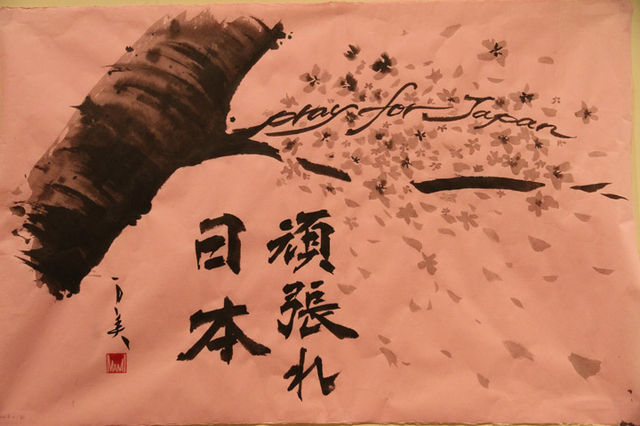 pray for Japan
頑張れ
日本
MAMI